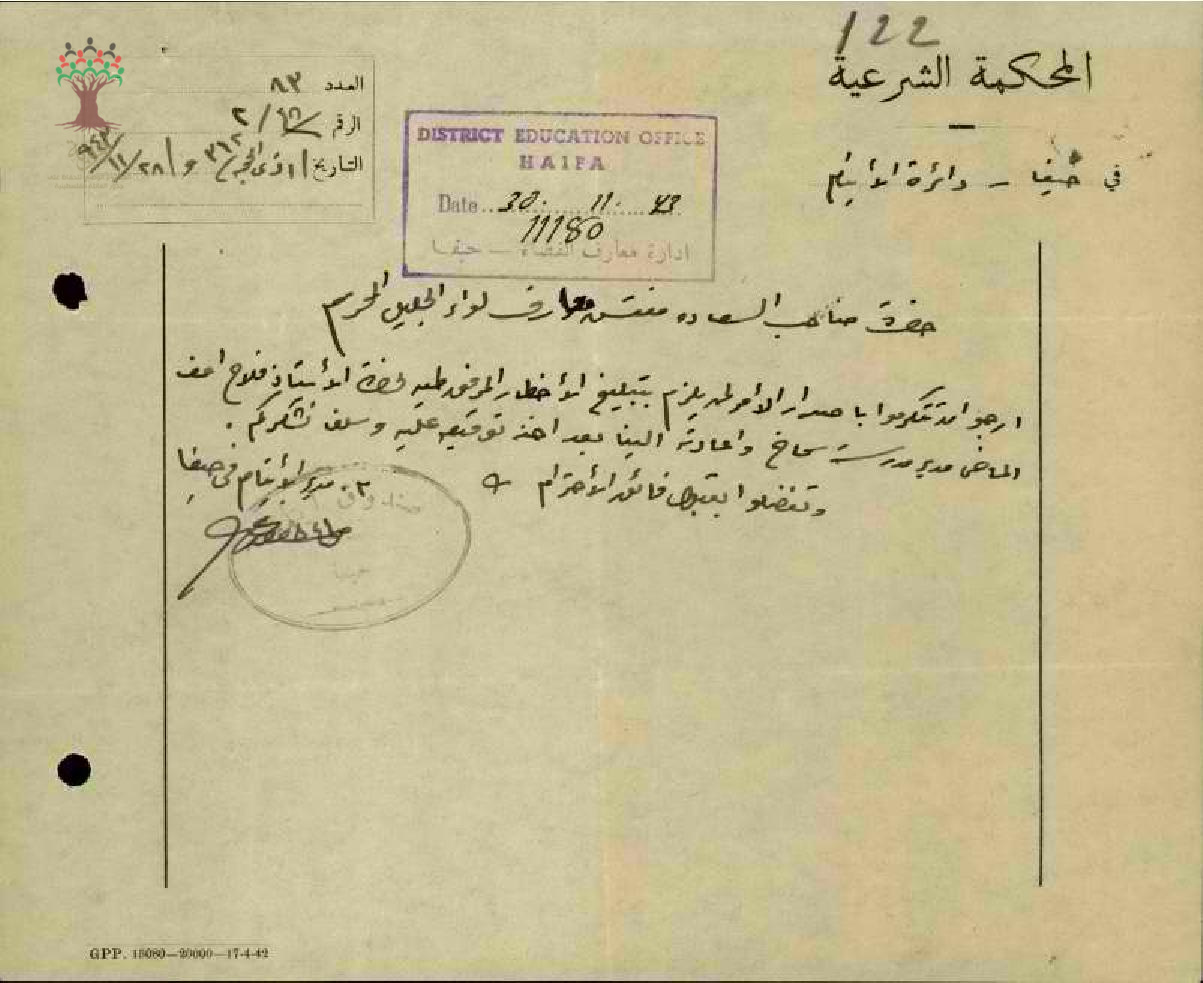 122
المحكمة الشرعية
في حيفا - دائرة الأيتام
العدد ٨٣
الرقم ٢/
التاريخ ١ ذي الحجة ٣٦٢ و ٢٨/١١/٩٤٣
DISTRICT EDUCATION OFFICE
HAIFA
Date 30. 11. 43
11180
ادارة معارف القضاء — حيفا
حضرة صاحب السعاده مفتش معارف لواء الجليل المحترم
ارجو ان تتكرموا باصدار الأمر لمن يلزم بتبليغ الأخطار المرفق طيه لحضرة الأستاذ فلاح افندي
الماضي مدير مدرسة سمخ واعادته الينا بعد اخذ توقيعه عليه وسلف نشكركم.
وتفضلوا بقبول فائق الأحترام
مدير الأيتام في حيفا
صندوق
حيفا
GPP. 13080—20000—17-4-42